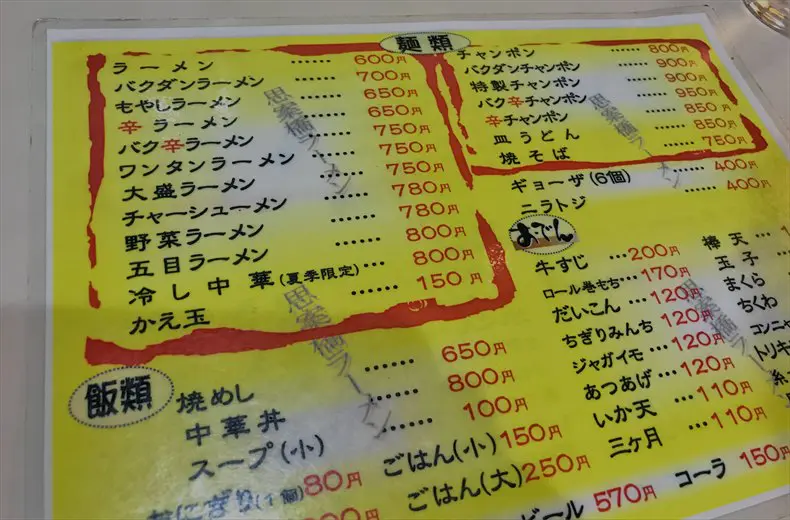 麺類
ラーメン ‥‥‥ 600円
バクダンラーメン ‥‥‥ 700円
もやしラーメン ‥‥‥ 650円
辛ラーメン ‥‥‥ 650円
バク辛ラーメン ‥‥‥ 750円
ワンタンラーメン ‥‥‥ 750円
大盛ラーメン ‥‥‥ 750円
チャーシューメン ‥‥‥ 780円
野菜ラーメン ‥‥‥ 780円
五目ラーメン ‥‥‥ 800円
冷し中華(夏季限定) ‥‥‥ 800円
かえ玉 ‥‥‥ 150円
チャンポン ‥‥‥ 800円
バクダンチャンポン ‥‥‥ 900円
特製チャンポン ‥‥‥ 900円
バク辛チャンポン ‥‥‥ 950円
辛チャンポン ‥‥‥ 850円
皿うどん ‥‥‥ 850円
焼そば ‥‥‥ 750円
ギョーザ(6個) ‥‥‥ 400円
ニラトジ ‥‥‥ 400円
おでん
牛すじ ‥‥ 200円
ロール巻もち ‥‥ 170円
だいこん ‥‥ 120円
ちぎりみんち ‥‥ 120円
ジャガイモ ‥‥ 120円
あつあげ ‥‥ 120円
いか天 ‥‥ 110円
三ヶ月 ‥‥ 110円
棒天
玉子
まくら
ちくわ
コンニャ
トリキ
糸
飯類
焼めし ‥‥‥ 650円
中華丼 ‥‥‥ 800円
スープ(小) ‥‥‥ 100円
おにぎり(1個) 80円
ごはん(小) 150円
ごはん(大) 250円
ビール 570円
コーラ 150円
思案橋ラーメン
思案橋ラーメン
思案橋ラーメン
思案橋ラーメン